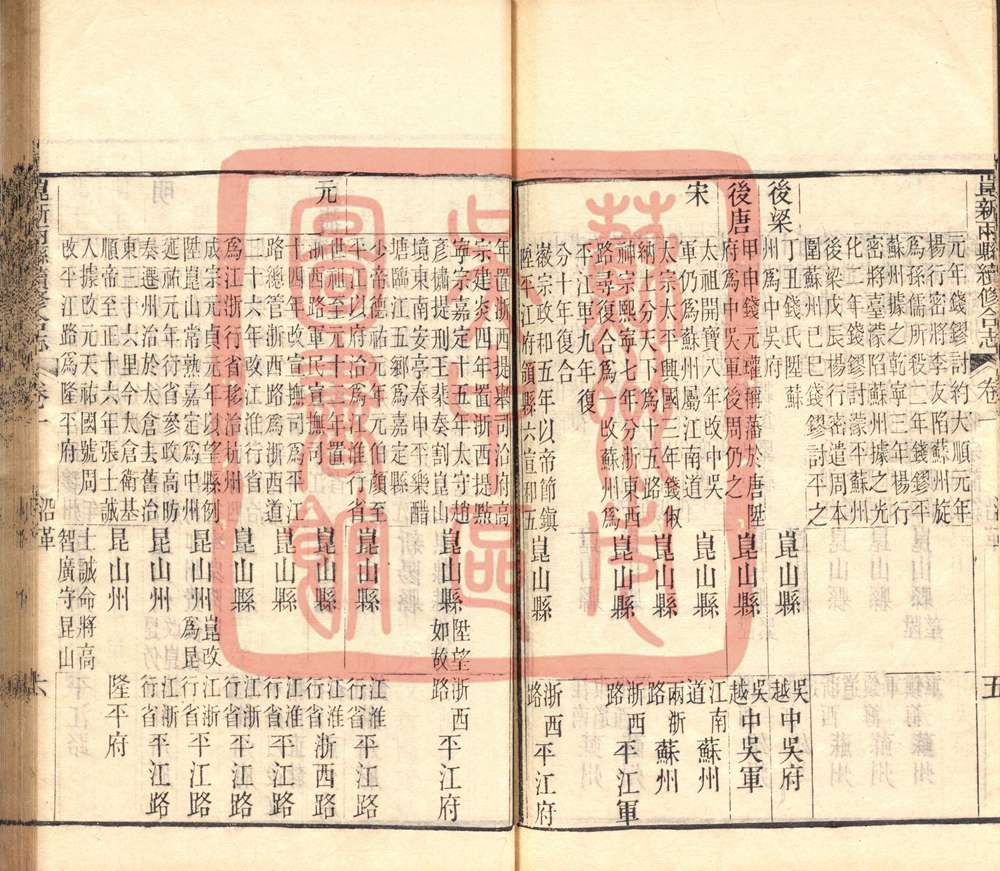 崑新兩縣續修合志 卷一
五
元年錢鏐討約大順元年
楊行密將李友陷蘇州旋
為孫儒所殺二年錢鏐平
蘇州據之乾寧三年楊行
密將臺濛陷蘇州據之光
化二年錢鏐討平蘇州
後梁戊辰楊行密遣周本
圍蘇州己巳錢鏐討平之
後梁
丁丑錢氏陞蘇
州為中吳府
崑山縣
吳越
中吳府
後唐
甲申錢元璙稱藩於唐陞
府為中吳軍後周仍之
崑山縣
吳越
中吳軍
宋
太祖開寶八年改中吳
軍仍為蘇州屬江南道
崑山縣
江南道
蘇州
太宗太平興國三年錢俶
納土分天下為十五路
崑山縣
兩浙路
蘇州
神宗熙寧七年分浙東西
路尋復合為一改蘇州為
平江軍九年復
分十年復合
崑山縣
浙西路
平江軍
徽宗政和五年以帝節鎮
陞平江府領縣六宣和五
崑山縣
浙西路
平江府
年置浙西提舉司治府高
宗建炎四年置浙西提點
寧宗嘉定十五年太守趙
彥橚提刑王棐奏割崑山
境東南安亭春申平樂醋
塘臨江五鄉為嘉定縣
崑山縣
陞望如故
浙西路
平江府
元
少帝德祐元年元伯顏至
平江以府治為江淮行省
崑山縣
江淮行省
平江路
世祖至元十三年置
浙西路軍民宣撫司
崑山縣
江淮行省
浙西路
十四年改宣撫司為平江
路總管浙西路為浙西道
崑山縣
江淮行省
平江路
二十六年改江淮行省
為江浙行省移治杭州
崑山縣
江浙行省
平江路
成宗元貞元年以望縣例
陞崑山常熟嘉定為中州
崑山縣
崑改為昆
江浙行省
平江路
延祐元年行省參政高昉
奏遷州治於太倉去舊治
東三十六里今太倉衛基
昆山州
江浙行省
平江路
順帝至正十六年張士誠
人據改元天祐國號周
改平江路為隆平府
昆山州
士誠命將高
智廣守昆山
隆平府
崑新兩縣續修合志 卷一
沿革
六